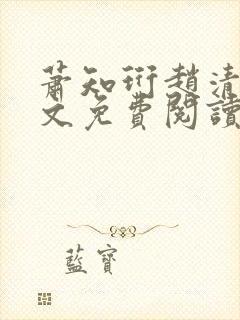 蕭知衍趙清
文免費閱讀
藍寶